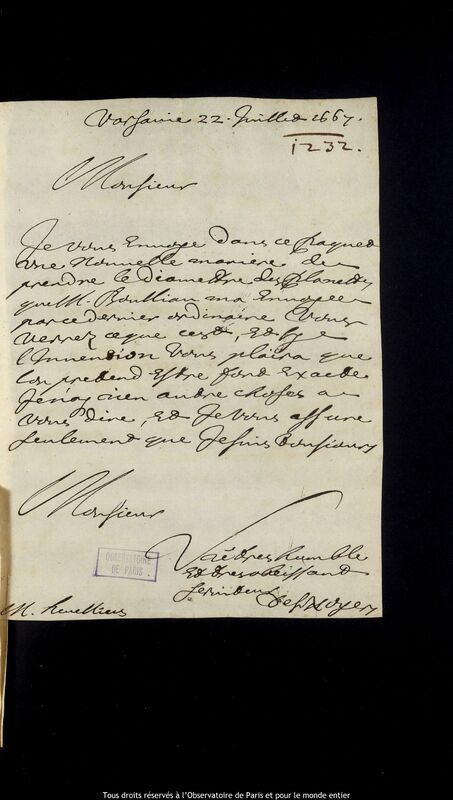 Varsavie 22. Juillet 1667.
1232.
Monsieur
Je vous Envoye dans ce paquet
une Nouvelle maniere de
prendre le Diamettre des planettes
que M. Boulliau ma Envoyée
par ce dernier ordinaire Vous
verrez ce que cest, Et si
l'Invention vous plaira que
lon pretend Estre fort Exacte
Je nay rien autre chose a
vous dire, Et Je vous assure
seulement que Je suis tousiours
Monsieur
Vostre tres humble
Et tres obeissant
serviteur
Des Noyers
OBSERVATOIRE
DE PARIS.
M. Hevelius
Tous droits réservés à l'Observatoire de Paris et pour le monde entier